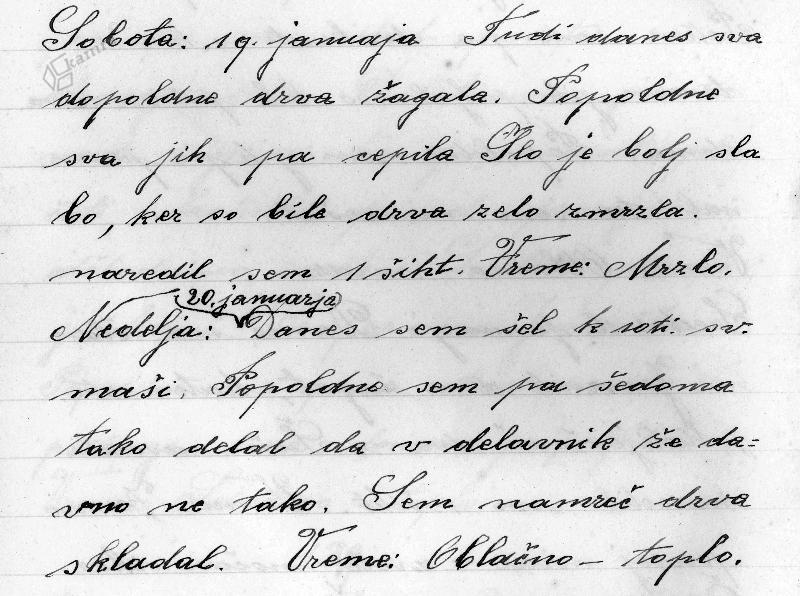 Sobota: 19. januaja Tudi danes sva
dopoldne drva žagala. Popoldne
sva jih pa cepila Šlo je bolj sla
bo, ker so bile drva zelo zmrzla.
naredil sem 1 šiht. Vreme: Mrzlo.
20. januarja
Nedelja: Danes sem šel k sv.
maši. Popoldne sem pa šedoma
tako delal da v delavnik že da=
vno ne tako. Sem namreč drva
skladal. Vreme: Oblačno – toplo.